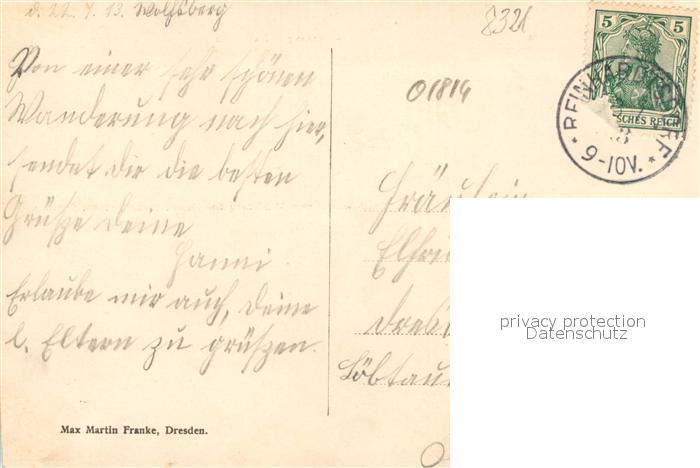 d. 22. 7. 13. Wolfsberg
Von einer sehr schönen
Wanderung nach hier,
sendet Dir die besten
Grüße Deine
Hanni.
Erlaube mir auch, Deine
l. Eltern zu grüßen.
Max Martin Franke, Dresden.
8321
01814
5 5
SCHES REICH
REINHARDTSDORF
9-10V.
Fräulein
Elfrie
Dresd
Löbtau
privacy protection
Datenschutz